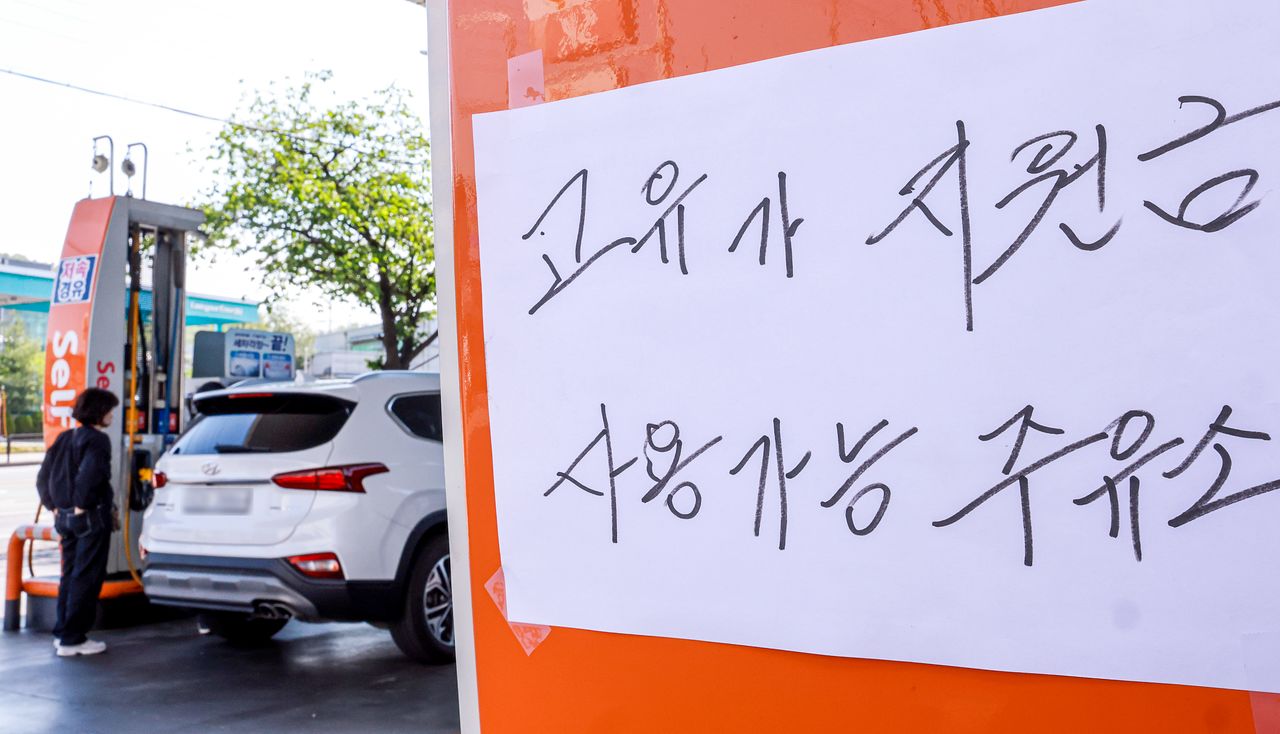 고유가 지원금
사용가능 주유소
저속
경유
Self
Se
세차걱정~ 끝!